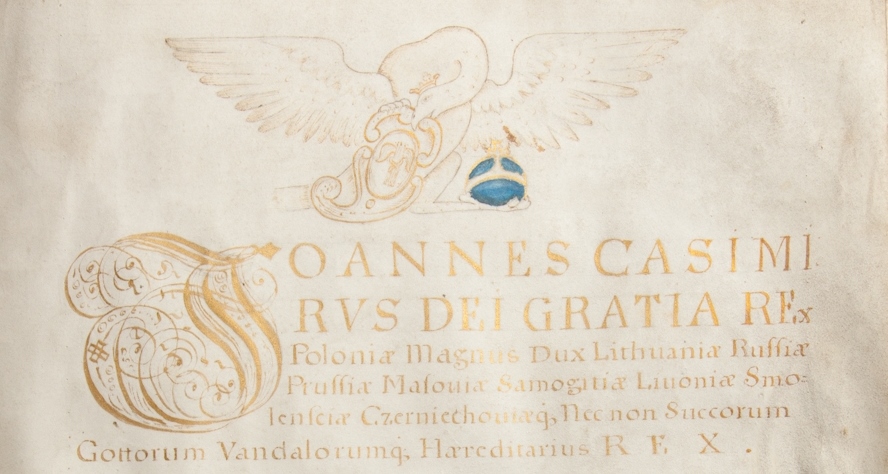 IOANNES CASIMI
RVS DEI GRATIA REx
Poloniæ Magnus Dux Lithuaniæ Russiæ
Prussiæ Masouiæ Samogitiæ Liuoniæ Smo-
lensciæ Czerniechouiæq, Nec non Suecorum
Gottorum Vandalorumq, Hæreditarius R E X .